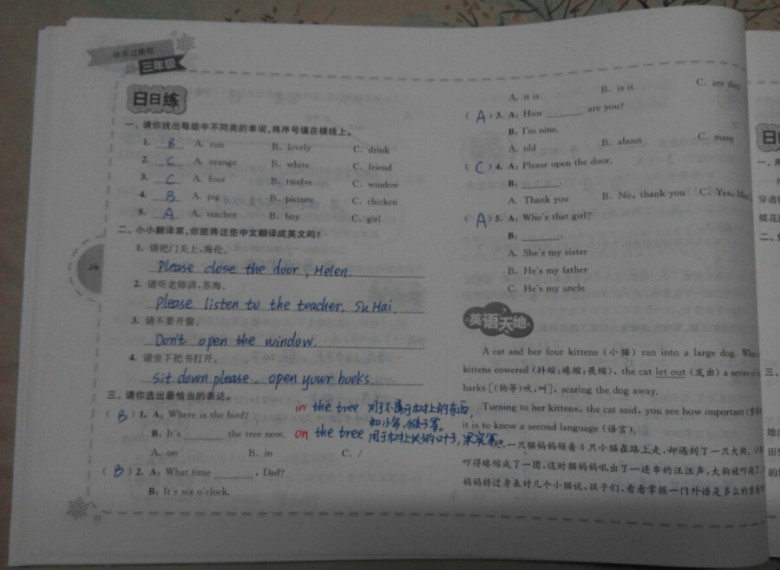 快乐过暑假
三年级
日日练
一、请你找出每组中不同类的单词,将序号填在横线上。
1. B A. run B. lovely C. drink
2. C A. orange B. white C. friend
3. C A. four B. twelve C. window
4. B A. pig B. picture C. chicken
5. A A. teacher B. boy C. girl
二、小小翻译家,你能将这些中文翻译成英文吗?
1. 请把门关上,海伦。
Please close the door , Helen.
2. 请听老师讲,苏海。
Please listen to the teacher, Su Hai
3. 请不要开窗。
Don't open the window.
4. 请坐下把书打开。
Sit down please. open your books.
三、请你选出最恰当的表达。
( B ) 1. A: Where is the bird?
B: It's the tree now.
A. on B. in C. /
in the tree 对于不属于树上的东西,
如小鸟,猴子等.
on the tree 用于树上长的叶子,果实等.
( B ) 2. A: What time , Dad?
B: It's six o'clock.
A. it is B. is it C. are they
( A ) 3. A: How are you?
B: I'm nine.
A. old B. about C. many
( C ) 4. A: Please open the door.
B: .
A. Thank you B. No, thank you C. Yes,
( A ) 5. A: Who's that girl?
B: .
A. She's my sister
B. He's my father
C. He's my uncle
英语天地
A cat and her four kittens (小猫) ran into a large dog.
kittens cowered (抖缩;蜷缩;畏缩), the cat let out (发出) a
barks [(狗等)吠,叫], scaring the dog away.
Turning to her kittens, the cat said, you see how important
it is to know a second language (语言).
一只猫妈妈领着4只小猫在路上走,却遇到了一只大狗,
吓得蜷缩成了一团,这时猫妈妈吼出了一连串的汪汪声,大狗被吓
妈妈转过身来对几个小猫说,孩子们,看看掌握一门外语是多么的